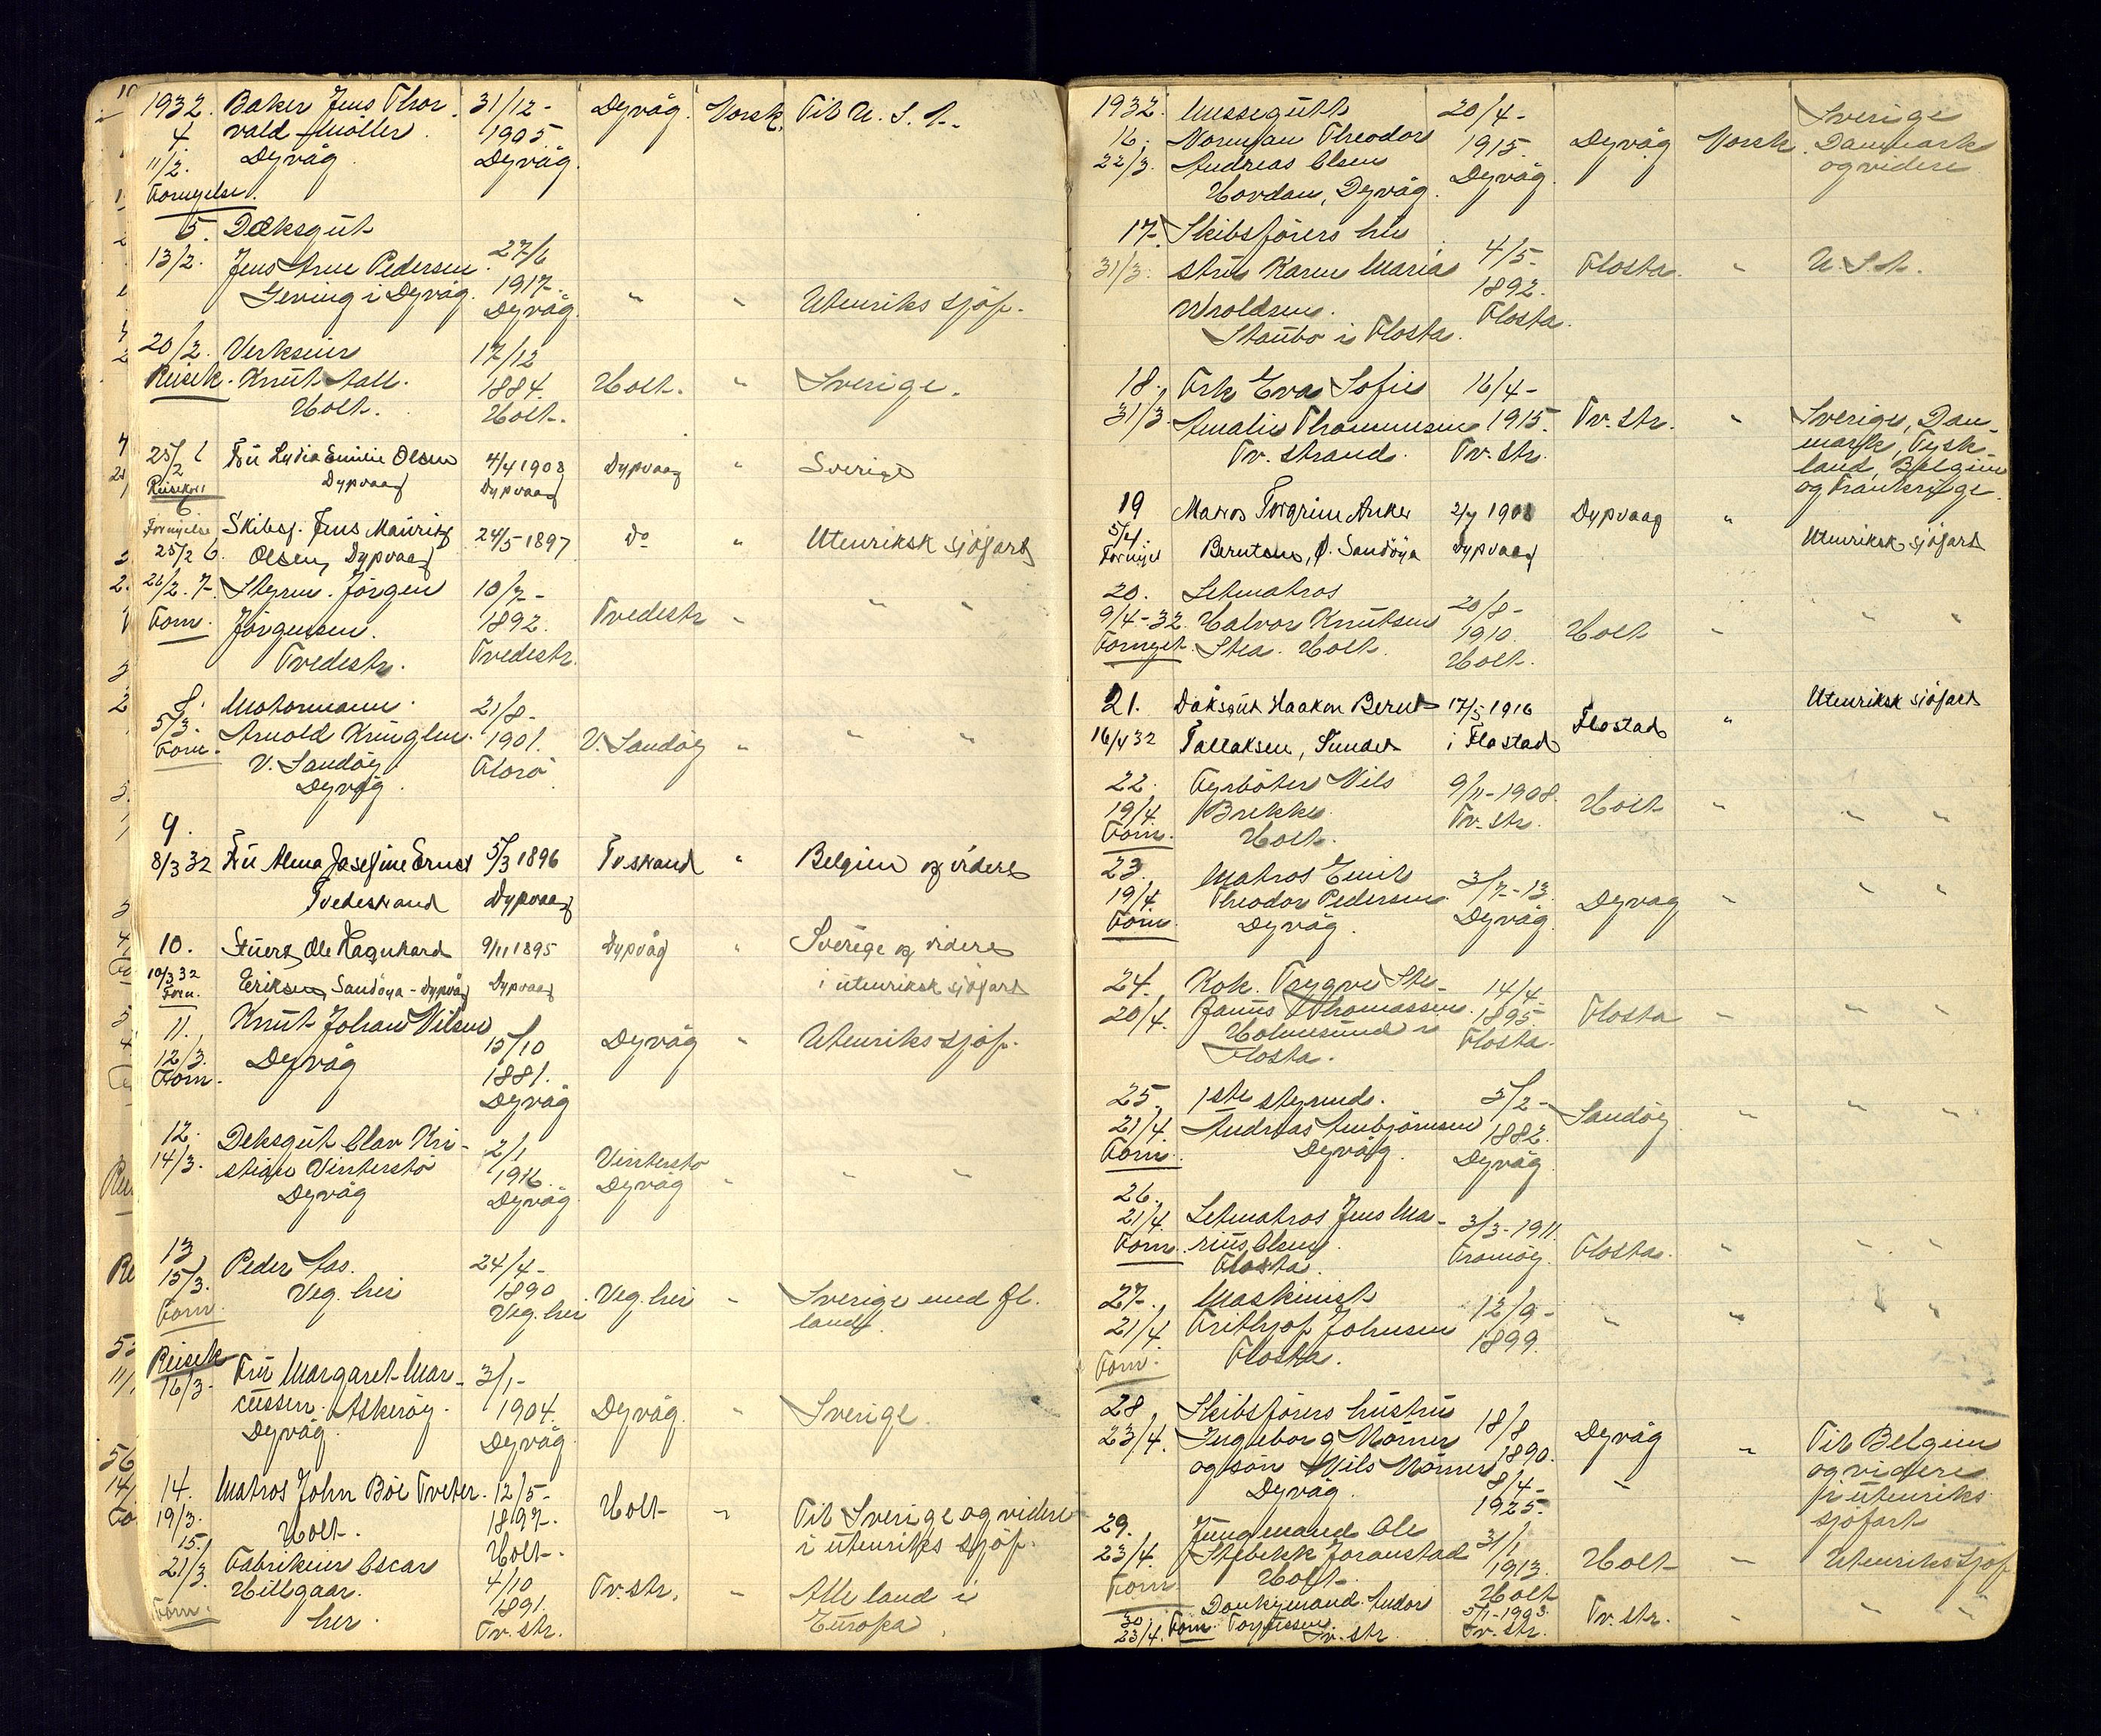 1932. Baker Jens Thor- 31/12- Dyvåg. Norsk. Til U. S. A.
4. vald Möller. 1905.
11/2. Dyvåg Dyvåg.
Fornyelse.
5. Dæksgut
13/2. Jens Arne Pedersen 27/6
Gjeving i Dyvåg. 1917. " " Utenriks sjöf.
Dyvåg.
20/2. Verkseier 17/12
Reisek. Knut Aall. 1884. Holt. " Sverige.
Holt. Holt.
25/2 Fru Lydia Emilie Olsen 4/4 1908 Dypvaag " Sverige
Reisekort Dypvaag Dypvaag
Fornyelse Skibsf. Jens Mauritz 24/5 1897 do " Utenriksk sjöfart
25/2 6. Olsen, Dypvaag
26/2. 7. Styrm. Jörgen 10/7-
Forn. Jörgensen. 1892. Tvedestr "  "  "
Tvedestr. Tvedestr.
8. Motormann. 21/8-
5/3. Arnold Kringlen. 1901. V. Sandöy " " "
Forn. V. Sandöy Florö
Dyvåg.
9.
8/3 32 Fru Alma Josefine Ernst 5/3 1896 Tvestrand " Belgien og videre
Tvedestrand Dypvaag
10. Stuert Ole Hagnhard 9/11 1895 Dypvåg " Sverige og videre
10/3 32 Eriksen, Sandöya - Dypvåg Dypvaag i utenriksk sjöfart
Forn.
11. Knut Johan Nilsen 15/10 Dyvåg " Utenriks sjöf.
12/3. Dyvåg 1881.
Forn. Dyvåg
12. Deksgut Olav Kri- 2/1 Vinterstö
14/3. stian Vinterstö 1916. Dyvåg " " "
Dyvåg Dyvåg
13. Peder Aas. 24/4-
15/3. Veg. hei 1890 Veg. hei " Sverige med fl.
Forn. Veg. hei land.
Reisek Fru Margaret Mar- 3/1-
16/3- cussen. Askeröy. 1904. Dyvåg. " Sverige.
Dyvåg. Dyvåg.
14. Matros John Böe Tveter. 12/5- Holt " Til Sverige og videre
19/3. Holt. 1897. i utenriks sjöf.
15. Holt.
21/3. Fabrikeier Oscar 4/10 Tv. str. " Alle land i
Forn. Hillgaar. 1891. Europa.
her. Tv. str.
1932. Messegutt 20/4- Sverige
16. Norman Theodor 1915. Dyvåg Norsk. Danmark
22/3. Andreas Olsen Dyvåg. og videre
Hovdan, Dyvåg.
17. Skibsförers hu
31/3. stru Karen Maria 4/5- Flosta. " U. S. A.
Wroldsen. 1892.
Staubo i Flosta. Flosta.
18. Frk Eva Sofie 16/4-
31/3. Amalie Thommesen 1915. Tv. str. " Sverige, Dan-
Tv. strand. Tv. str. mark, Tysk-
land, Belgien
og Frankrige.
19 Matros Torgrim Anker 2/7 1908 Dypvaag "
5/4. Berntsen, Ö. Sandöya Dypvaag Utenriksk sjöfart
Fornyet
20. Letmatros 20/8-
9/4-32. Halvor Knutsen 1910. Holt " " "
Fornyet. Stea. Holt. Holt.
21. Däksgut Haakon Bernt 17/5 1916 Flostad " Utenriksk sjöfart
16/4 32 Tallaksen, Sundet i Flostad
22. Fyrböter Nils 9/11-1908. Holt " " "
19/4. Brekke. Tv. str.
Forn. Holt.
23. Matros Emil 3/7-13.
19/4. Theodor Pedersen. Dyvåg. Dyvåg " " "
Forn Dyvåg.
24. Kok. Trygve Ste- 14/4
20/4. Thomassen. 1895- Flosta " " "
Holmesund i Flosta.
Flosta.
25. 1ste styrmd. 5/2- Sandöy " " "
21/4. Andreas Ambjörnsen 1882.
Forn. Dyvåg. Dyvåg
26.
21/4. Letmatros Jens Ma- 3/3-1911.
Forn rius Olsen. Tromöy. Flosta. " " "
Flosta.
27. Maskinist 12/9-
21/4. Frithjof Johnsen 1899. " " " "
Forn. Flosta.
28. Skibsförers hustru 18/8 Dyvåg " Til Belgien
23/4. Ingeborg Mörner 1890. og videre
og sön Nils Mörner 8/4- " i utenriks
Dyvåg. 1925. sjöfart
29. Jungmand Ole 31/1
23/4. Stebekk Joranstad 1913. Holt " Utenriks sjöf
Forn Holt. Holt
30. Donkymand Andor 5/1-1903. Tv. str. " " "
23/4. Forn. Torjussen. Tv. str Tv. str.